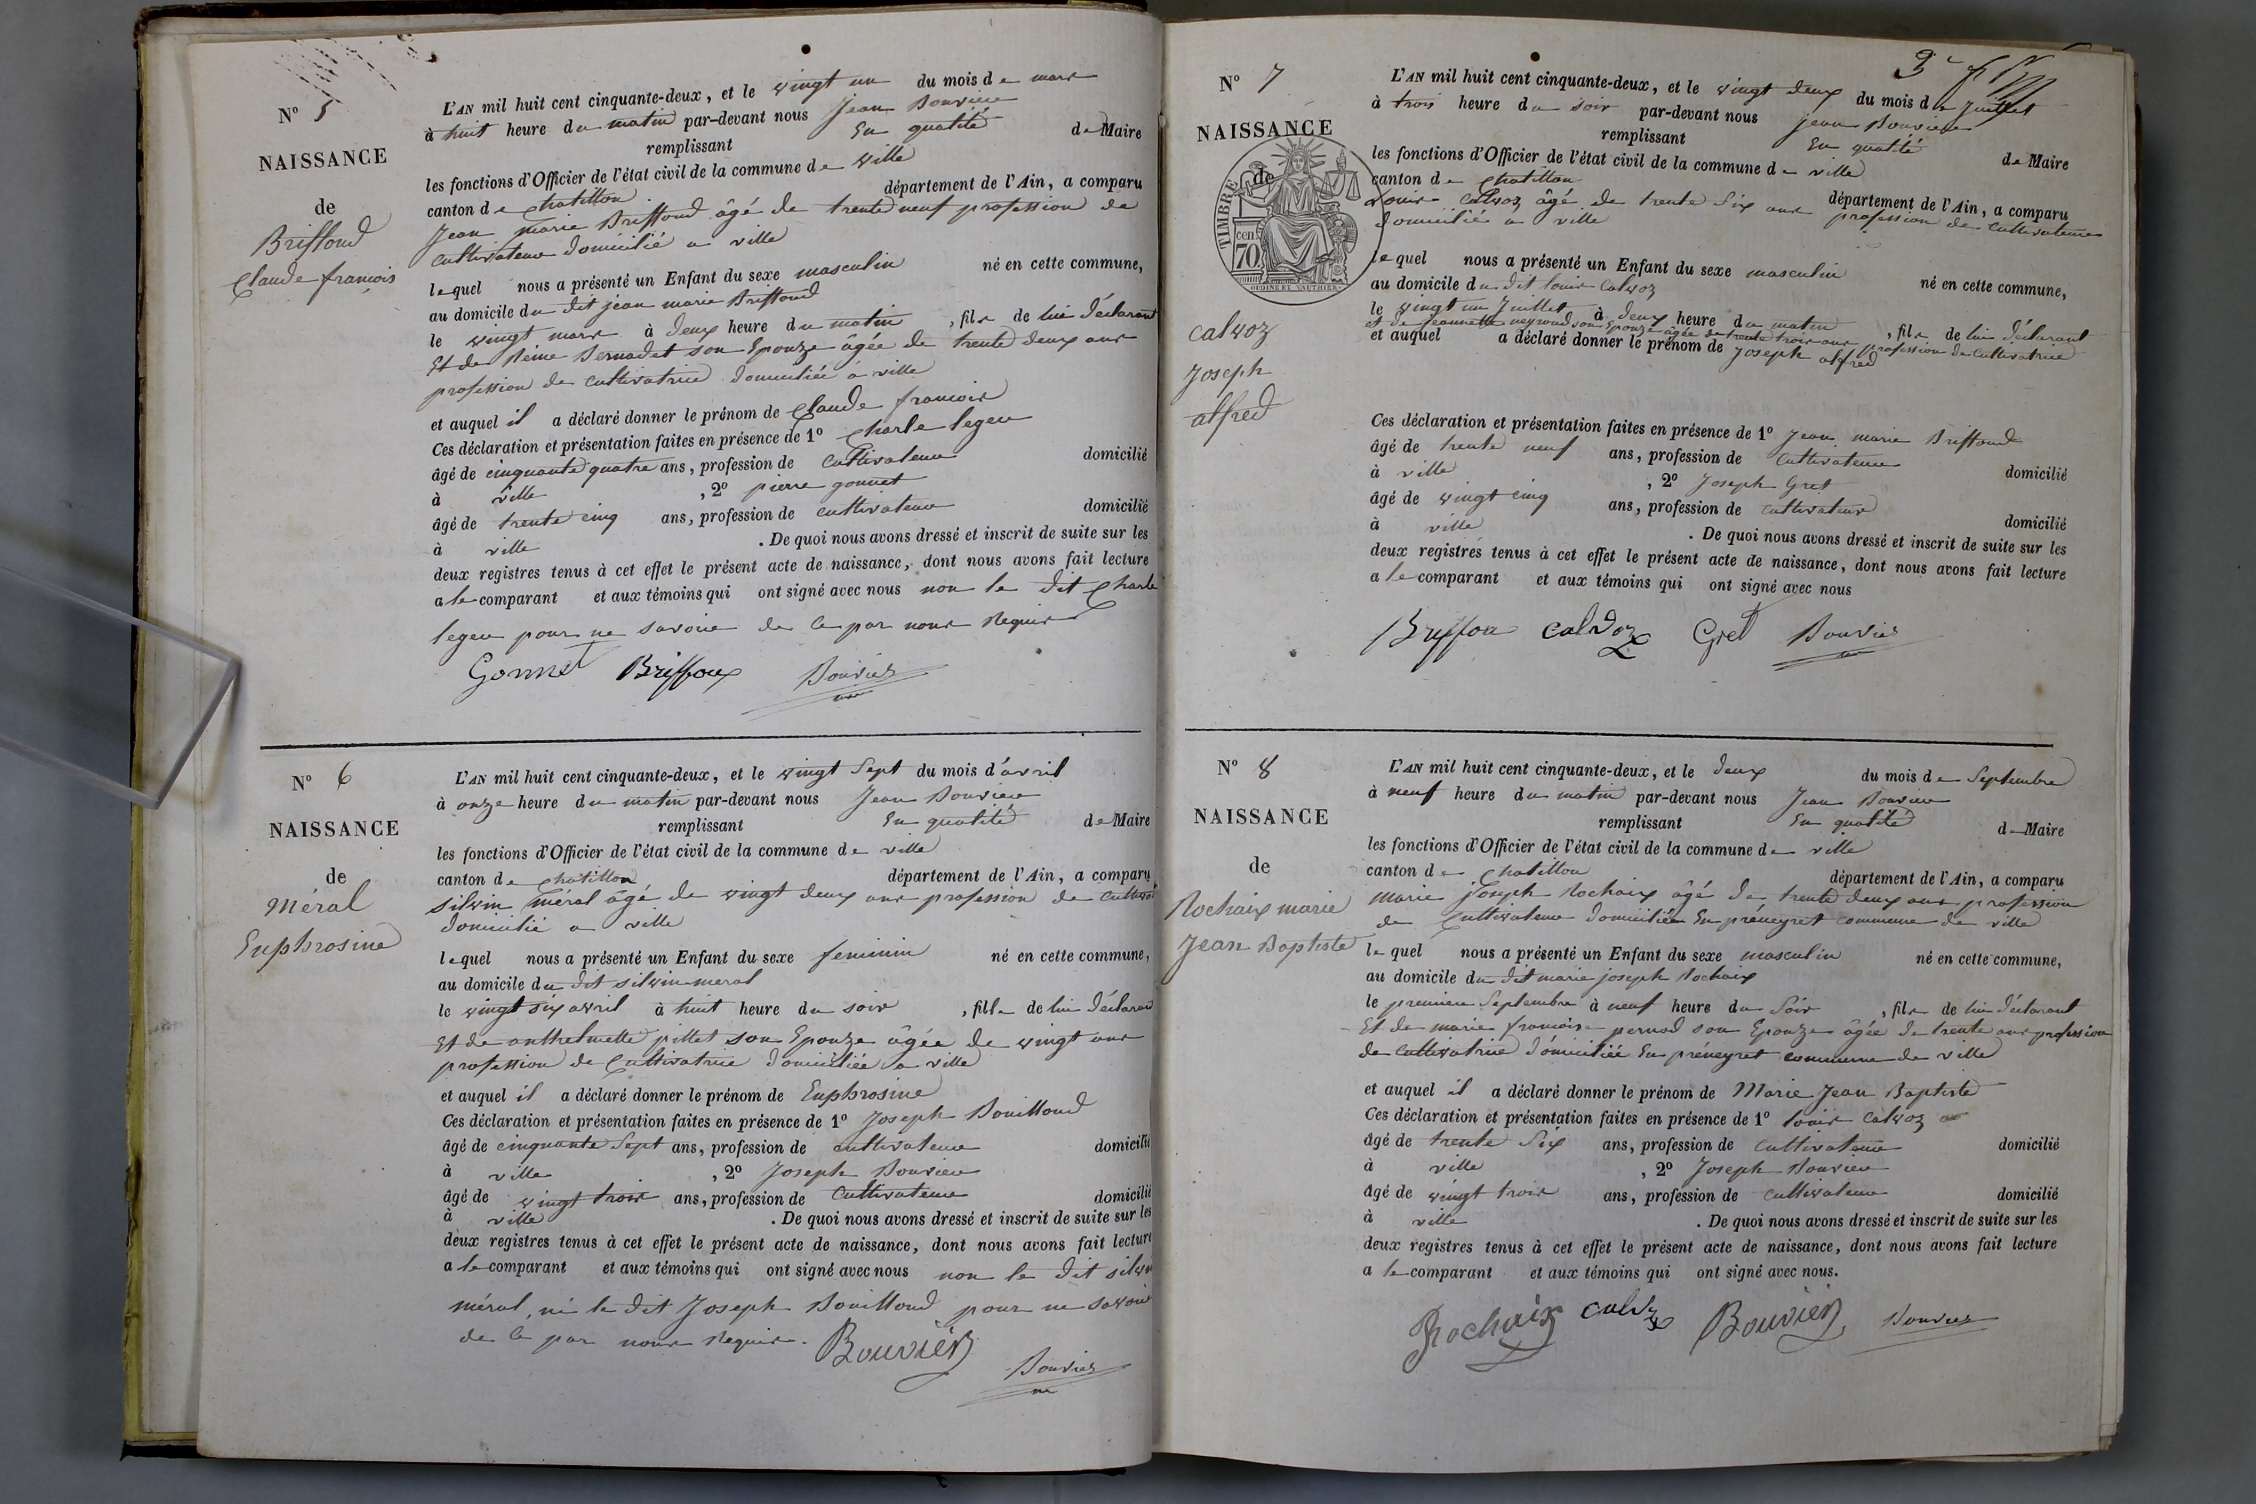 N° 5
NAISSANCE
de
Briffoud
Claude françois
L'AN mil huit cent cinquante-deux, et le vingt un du mois de mars
à huit heure du matin par-devant nous Jean Bouvier
remplissant En qualité de Maire
les fonctions d'Officier de l'état civil de la commune de ville
canton de Chatillon département de l'Ain, a comparu
Jean marie Briffoud âgé de trente neuf profession de
cultivateur domicilié a ville
lequel nous a présenté un Enfant du sexe masculin né en cette commune,
au domicile du dit jean marie Briffoud
le vingt mars à deux heure du matin, fils de lui déclarant
Et de Reine Bernadet son Epouze âgée de trente deux ans
profession de cultivatrice domiciliée a ville
et auquel il a déclaré donner le prénom de Claude francois
Ces déclaration et présentation faites en présence de 1° Charle legeu
âgé de cinquante quatre ans, profession de cultivateur domicilié
à ville, 2° pierre gonnet
âgé de trente cinq ans, profession de cultivateur domicilié
à ville. De quoi nous avons dressé et inscrit de suite sur les
deux registres tenus à cet effet le présent acte de naissance, dont nous avons fait lecture
a le comparant et aux témoins qui ont signé avec nous non le dit Charle
legeu pour ne savoir de ce par nous Requis
Gonnet Briffoux Bouvier
N° 6
NAISSANCE
de
Méral
Euphrosine
L'AN mil huit cent cinquante-deux, et le vingt Sept du mois d'avril
à onze heure du matin par-devant nous Jean Bouvier
remplissant En qualité de Maire
les fonctions d'Officier de l'état civil de la commune de ville
canton de Chatillon département de l'Ain, a comparu
silvin méral âgé de vingt deux ans profession de cultivat
domicilié a ville
lequel nous a présenté un Enfant du sexe feminin né en cette commune,
au domicile du dit silvin meral
le vingt six avril à huit heure du soir, fille de lui déclarant
Et de anthelmette pillet son Epouze âgée de vingt ans
profession de Cultivatrice domiciliée a ville
et auquel il a déclaré donner le prénom de Euphrosine
Ces déclaration et présentation faites en présence de 1° Joseph Bouilloud
âgé de cinquante Sept ans, profession de cultivateur domicilié
à ville, 2° Joseph Bouvier
âgé de vingt trois ans, profession de Cultivateur domicilié
à ville. De quoi nous avons dressé et inscrit de suite sur les
deux registres tenus à cet effet le présent acte de naissance, dont nous avons fait lecture
a le comparant et aux témoins qui ont signé avec nous non le dit silvin
méral, ni le dit Joseph Bouilloud pour ne savoir
de ce par nous Requis. Bouvier
Bouvier
3e
N° 7
NAISSANCE
de
TIMBRE
70 cen.
OUDINE ET VAUTHIER
Calvoz
Joseph
alfred
L'AN mil huit cent cinquante-deux, et le vingt deux du mois de Juillet
à trois heure du soir par-devant nous Jean Bouvier
remplissant En qualité de Maire
les fonctions d'Officier de l'état civil de la commune de ville
canton de Chatillon département de l'Ain, a comparu
Louis Calvoz âgé de trente Six ans profession de Cultivateur
domicilié a ville
lequel nous a présenté un Enfant du sexe masculin né en cette commune,
au domicile du dit louis Calvoz
le vingt un Juillet à deux heure du matin, fils de lui déclarant
et de Jeannette neyroud son Epouze âgée de trente trois ans profession de Cultivatrice
et auquel a déclaré donner le prénom de Joseph alfred
Ces déclaration et présentation faites en présence de 1° Jean marie Briffoud
âgé de trente neuf ans, profession de Cultivateur domicilié
à ville, 2° Joseph Gret
âgé de vingt cinq ans, profession de cultivateur domicilié
à ville. De quoi nous avons dressé et inscrit de suite sur les
deux registres tenus à cet effet le présent acte de naissance, dont nous avons fait lecture
a le comparant et aux témoins qui ont signé avec nous
Briffou calvoz Gret Bouvier
N° 8
NAISSANCE
de
Rochaix marie
Jean Baptiste
L'AN mil huit cent cinquante-deux, et le deux du mois de Septembre
à neuf heure du matin par-devant nous Jean Bouvier
remplissant En qualité de Maire
les fonctions d'Officier de l'état civil de la commune de ville
canton de Chatillon département de l'Ain, a comparu
Marie joseph Rochaix âgé de trente deux ans profession
de Cultivateur domiciliée En préneyret commune de ville
lequel nous a présenté un Enfant du sexe masculin né en cette commune,
au domicile du dit marie joseph Rochaix
le premier Septembre à neuf heure du Soir, fils de lui déclarant
Et de marie francoise pernod son Epouze âgée de trente ans profession
de Cultivatrice domiciliée En préneyret commune de ville
et auquel il a déclaré donner le prénom de Marie Jean Baptiste
Ces déclaration et présentation faites en présence de 1° louis Calvoz
âgé de trente Six ans, profession de Cultivateur domicilié
à ville, 2° Joseph Bouvier
âgé de vingt trois ans, profession de cultivateur domicilié
à ville. De quoi nous avons dressé et inscrit de suite sur les
deux registres tenus à cet effet le présent acte de naissance, dont nous avons fait lecture
a le comparant et aux témoins qui ont signé avec nous.
Rochaix calvoz Bouvier Bouvier